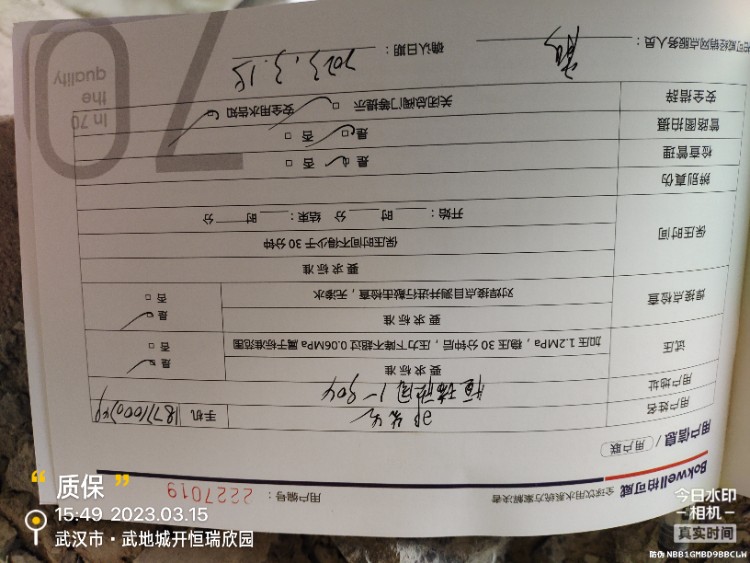 Bokwell柏可威 全球饮用水系统方案解决者
用户编号: 2227019
用户信息 / 用户联
用户姓名 手机
用户地址 恒瑞欣园1-904
试压 要求标准 是
加压1.2MPa，稳压30分钟后，压力下降不超过0.06MPa属于标准范围 否
焊接点检查 要求标准 是
对焊接点目测并进行敲击检查，无渗水 否
保压时间 要求标准
保压时间不得少于30分钟
开始: 时 分 结束: 时 分
辨别真伪
检查管理 是 否
管路图拍摄 是 否
安全措辞 关闭总阀门等提示 安全用水告知
柏可威经销网点服务人员: 确认日期: 2023.3.15
In 70
the
quality
70
“质保”
15:49 2023.03.15
武汉市·武地城开恒瑞欣园
今日水印
相机
真实时间
防伪 NBB1GMBD9BBCLW